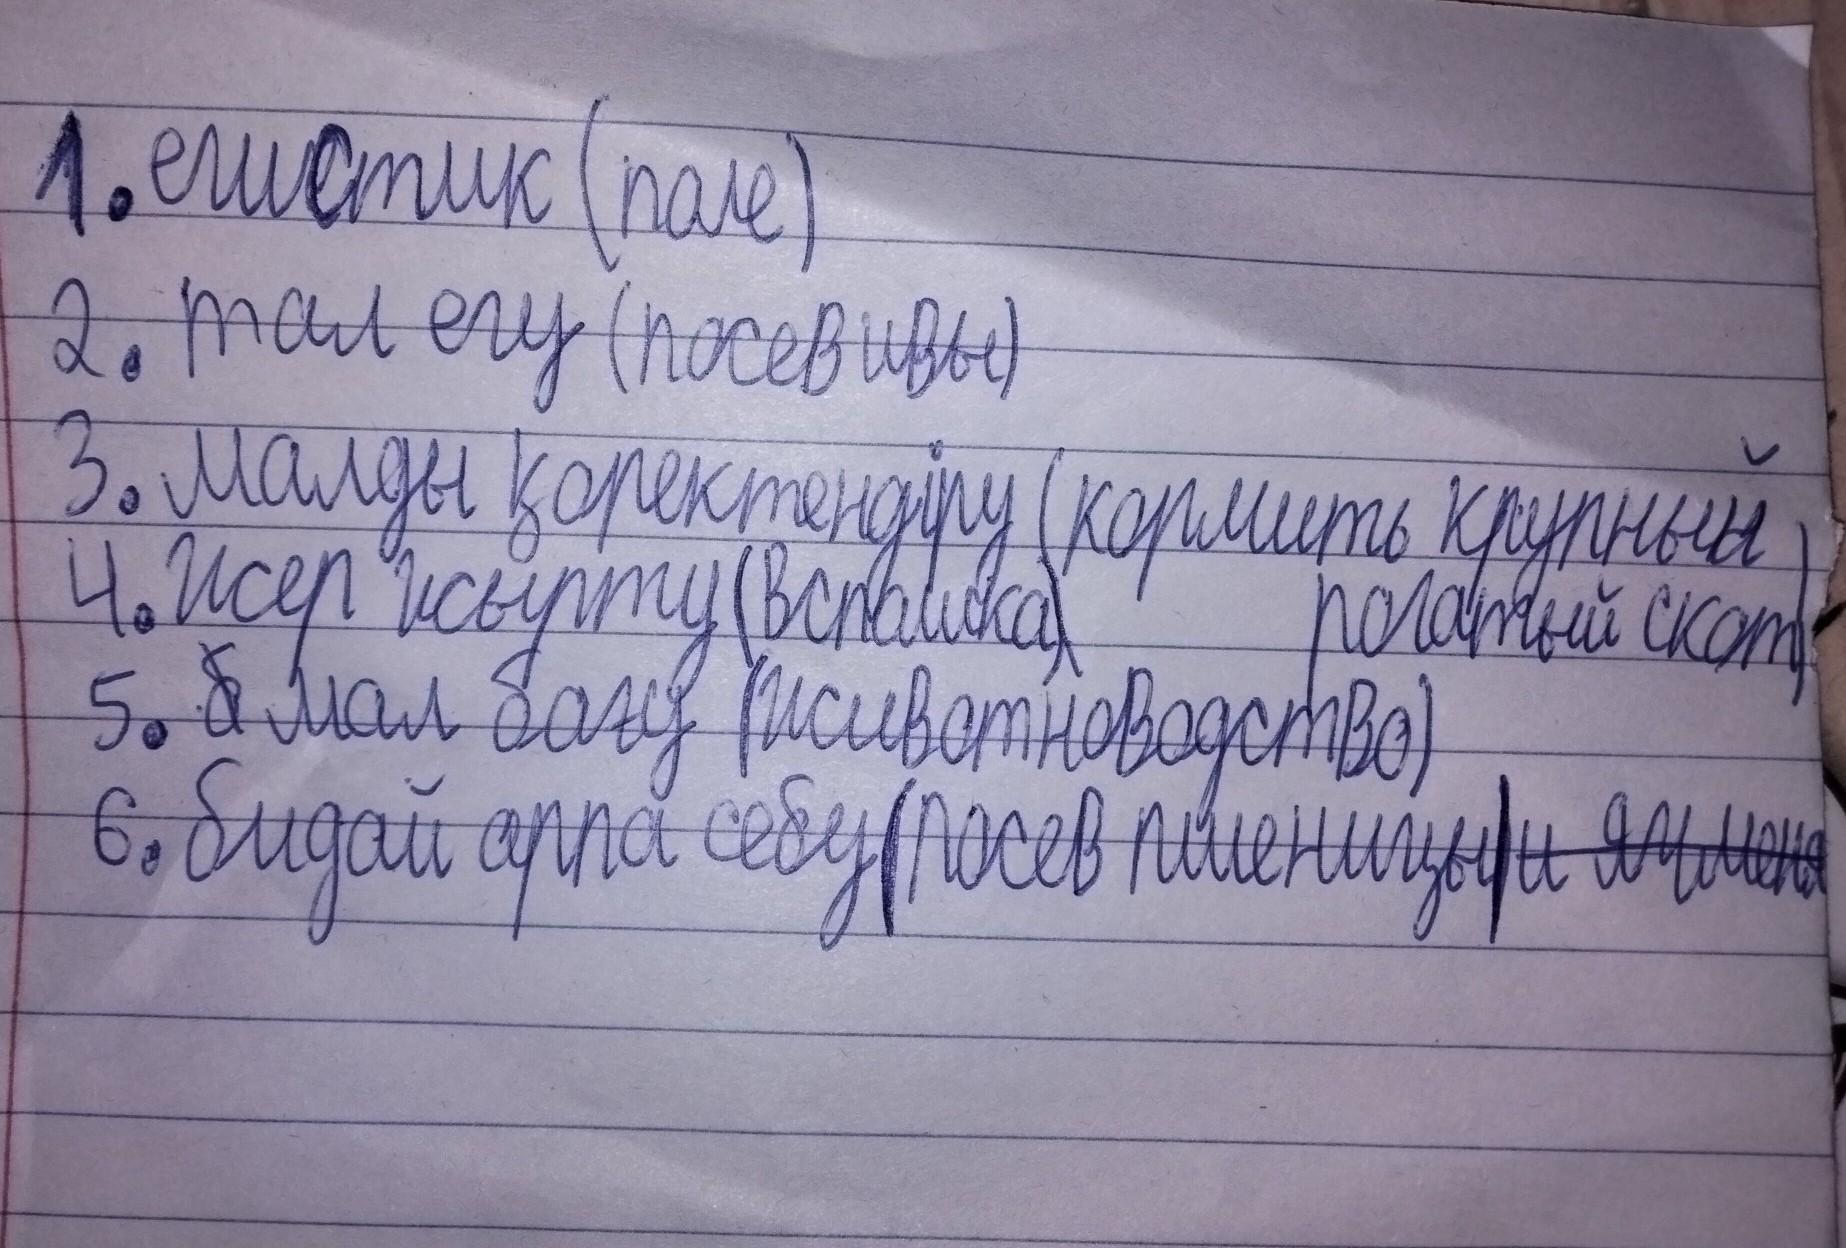 1. егистик (поле)
2. тал егу (посев ивы)
3. малды қоректендіру (кормить крупный
рогатый скот)
4. жер жырту (вспашка)
5. мал бағу (животноводство)
6. бидай арпа себу (посев пшеницы) и ячменя